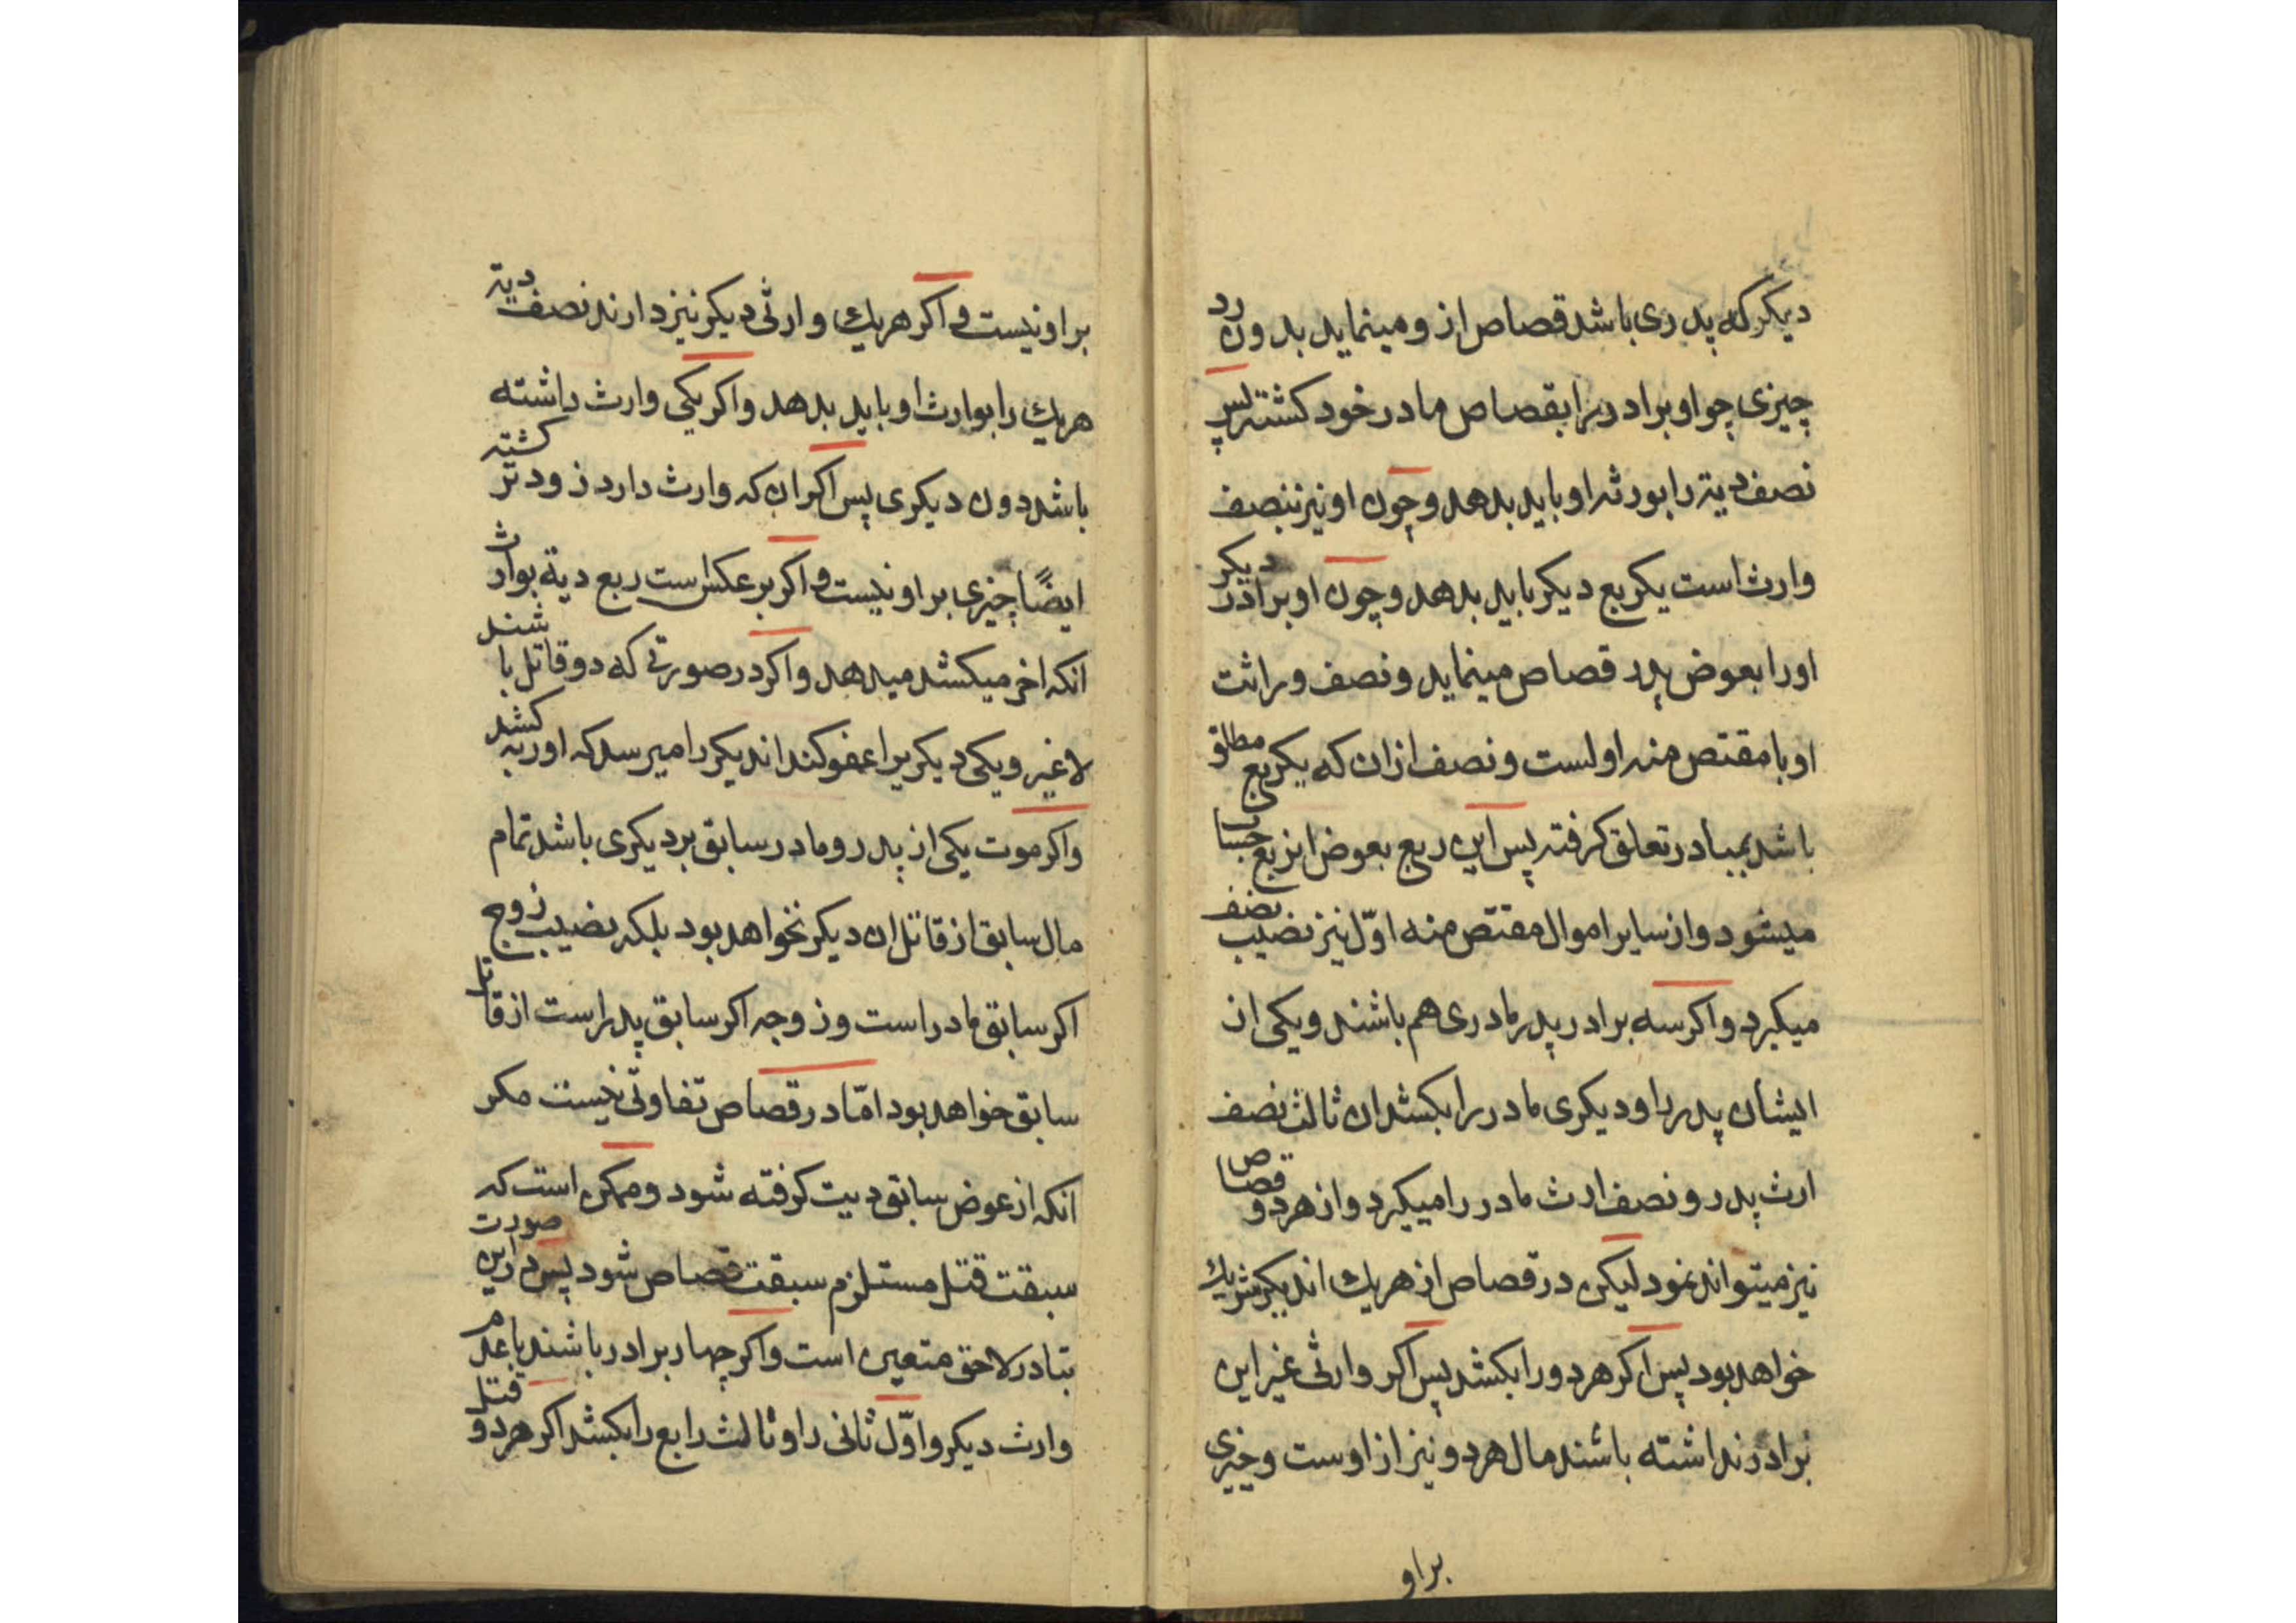 دیکر که پدری باشد قصاص ازو مینماید بدون رد
چیزی چو او برادر را بقصاص مادر خود کشته پس
نصف دیة را بورثه او باید بدهد و چون او نیز بنصف
وارث است یکربع دیکر باید بدهد و چون او برادر دیکر
اورا بعوض پدر قصاص مینماید و نصف وراثت
او با مقتص منه اولست و نصف ازان که یکربع مطلق
باشد بمبادر تعلق کرفته پس این ربع بعوض انربع حساب
میشود و از سایر اموال مقتص منه اوّل نیز نصیب نصف
میکیرد و اکر سه برادر پدر مادری هم باشند و یکی از
ایشان پدر را و دیکری مادر را بکشد ان ثالث نصف
ارث پدر و نصف ارث مادر را میکیرد و از هر دو قصاص
نیز میتواند نمود لیکن در قصاص از هریك اندیکر شریك
خواهد بود پس اکر هر دو را بکشد پس اکر وارثی غیر این
برادر نداشته باشند مال هر دو نیز از اوست و چیزی
براو
براو نیست و اکر هریك وارثی دیکر نیز دارند نصف دیة
هریك را بوارث او باید بدهد و اکر یکی وارث داشته
باشد دون دیکری پس اکر ان که وارث دارد زودتر کشته
ایضًا چیزی براو نیست و اکر بر عکس است ربع دیة بوارث
انکه اخر میکشد میدهد و اکر در صورتی که دو قاتل باشند
لاغیر و یکی دیکریرا عفو کند اندیکر را میرسد که اورا بکشد
و اکر موت یکی از پدر و مادر سابق بر دیکری باشد تمام
مال سابق از قاتل ان دیکر نخواهد بود بلکه نصیب زوج
اکر سابق مادر است و زوجه اکر سابق پدر است از قاتل
سابق خواهد بود امّا در قصاص تفاوتی نیست مکر
انکه از عوض سابق دیت کرفته شود و ممکن است که
سبقت قتل مستلزم سبقت قصاص شود پس در این صورت
تبادر لاحق متعین است و اکر چهار برادر باشند با عدم
وارث دیکر و اوّل ثانی را و ثالث رابع را بکشد اکر هر دو قتل